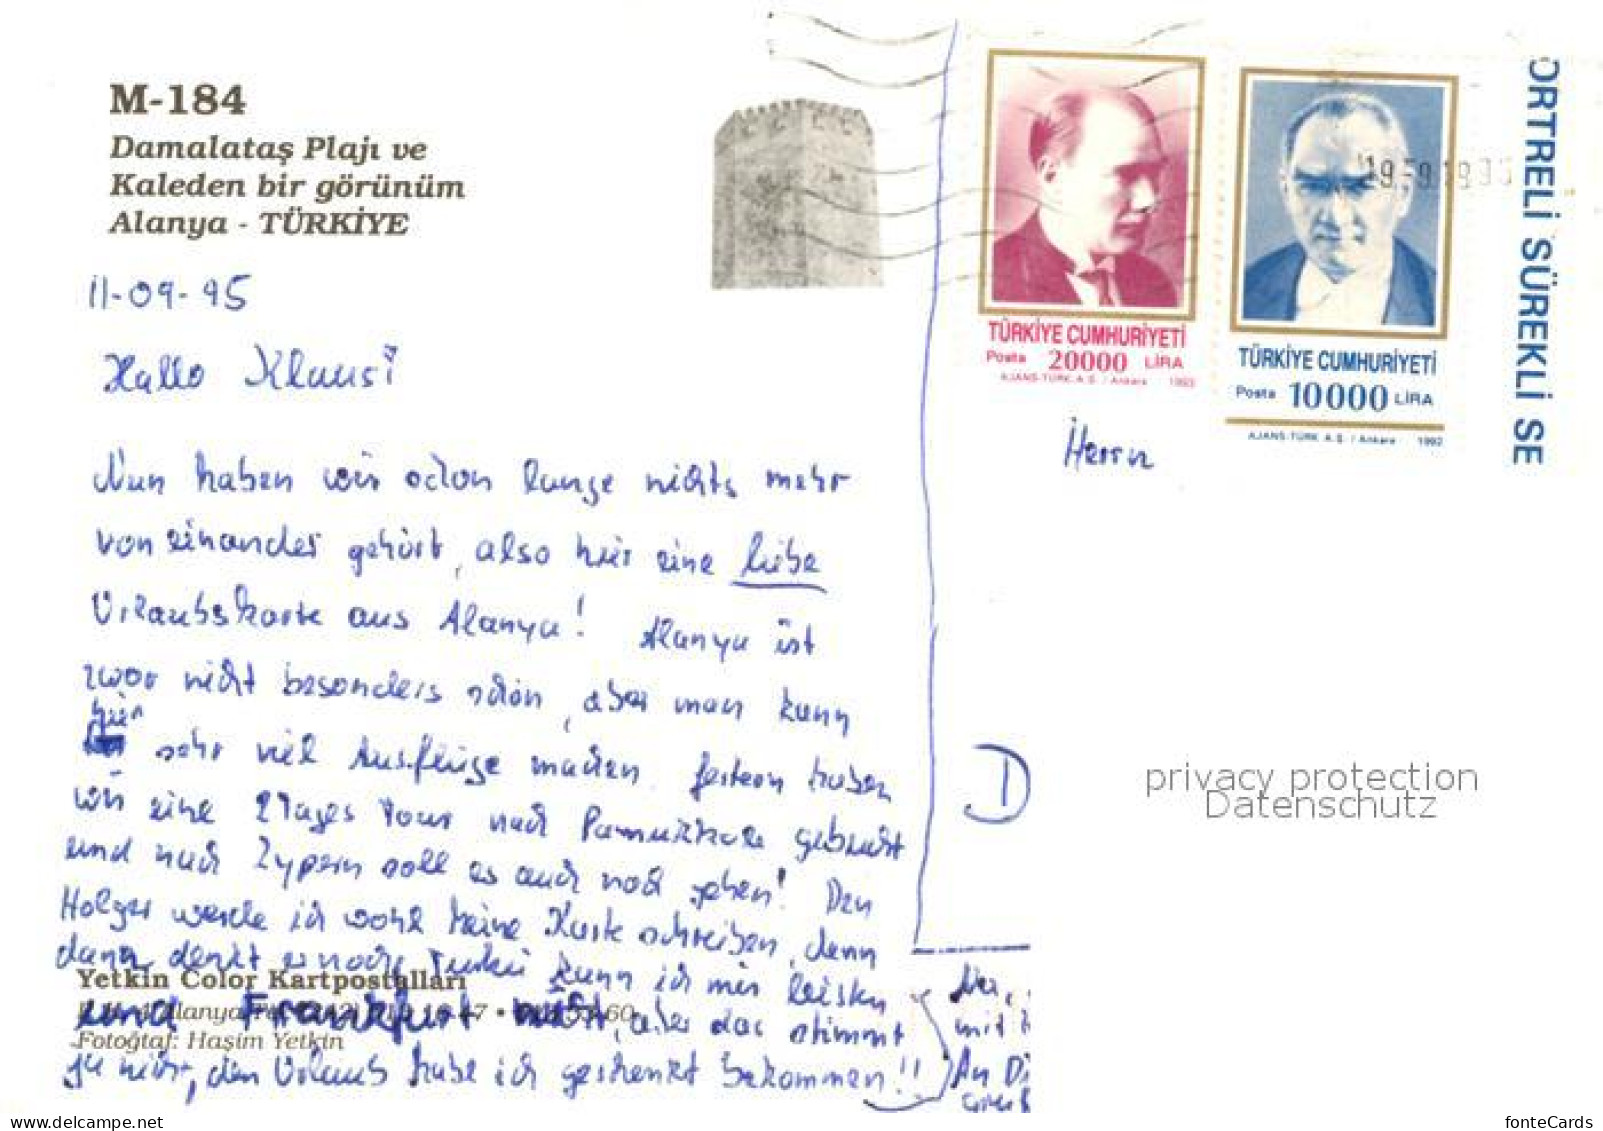 M-184
Damalataş Plajı ve
Kaleden bir görünüm
Alanya - TÜRKİYE
11-09-95
Hallo Klausi
Nun haben wir schon lange nichts mehr
voneinander gehört, also hier eine liebe
Urlaubskarte aus Alanya! Alanya ist
zwar nicht besonders schön, aber man kann
hier sehr viel Ausflüge machen. Gestern haben
wir eine 2 Tages Tour nach Pamukkale gebucht
und nach Zypern soll es auch noch gehen! Den
Holger werde ich wohl keine Karte schreiben, denn
dann denkt er noch, Türkei kann ich mir leisten
und Frankfurt nicht, aber das stimmt
ja nicht, den Urlaub habe ich geschenkt bekommen!!
Yetkin Color Kartpostalları
Fotoğraf: Haşim Yetkin
TÜRKİYE CUMHURİYETİ
Posta 20000 LİRA
AJANS-TÜRK A.Ş. / Ankara 1993
TÜRKİYE CUMHURİYETİ
Posta 10000 LİRA
AJANS-TÜRK A.Ş. / Ankara 1992
ORTRELİ SÜREKLİ SE
Herrn
D
mit
An Di
privacy protection
Datenschutz
www.delcampe.net
fonteCards